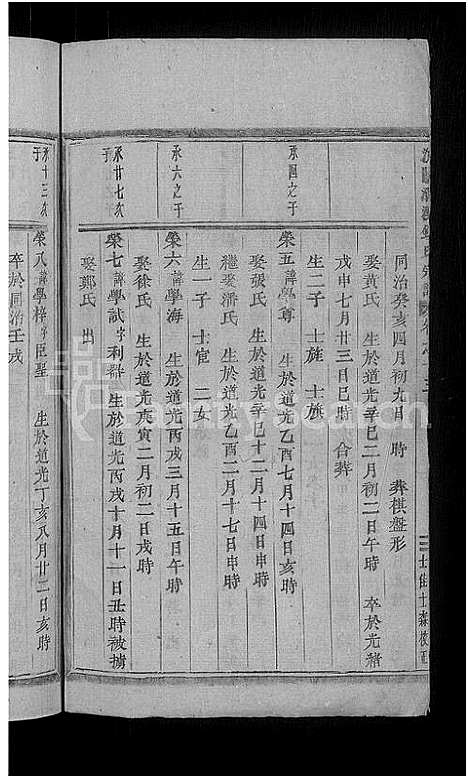 同治癸亥四月初九日 時 葬棋盤形
娶黃氏 生於道光辛巳二月初二日午時 卒於光緒
戊申七月廿三日巳時 合葬
生二子 士旌 士旗
承四之子
榮五諱學尊 生於道光乙酉七月十四日亥時
娶張氏 生於道光辛巳十二月十四日申時
繼娶潘氏 生於道光乙酉二月十七日申時
生一子 士宦 二女
承六之子
榮六諱學海 生於道光丙戌三月十五日午時
娶徐氏 生於道光庚寅二月初二日戌時
承廿七次子
榮七諱學猷字利群 生於道光丙戌十月十一日丑時被擄
娶鄭氏 出
承十三次子
榮八諱學梓字臣聖 生於道光丁亥八月廿二日亥時
卒於同治壬戌
FamilySearch